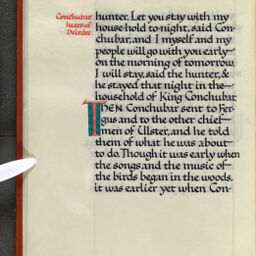 Conchubar
hears of
Deirdre
hunter. Let you stay with my
household to-night, said Con-
chubar, and I myself and my
people will go with you early
on the morning of tomorrow.
I will stay, said the hunter, &
he stayed that night in the
household of King Conchubar
THEN Conchubar sent to Fer-
gus and to the other chief
men of Ulster, and he told
them of what he was about
to do. Though it was early when
the songs and the music of
the birds began in the woods,
it was earlier yet when Con-